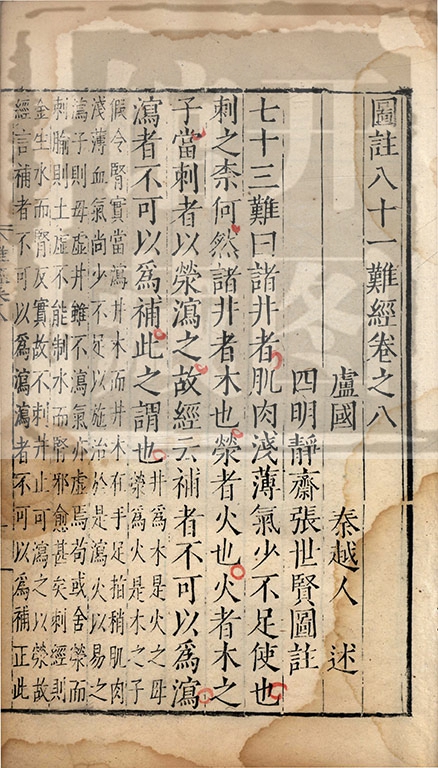 圖註八十一難經卷之八
盧國 秦越人 述
四明靜齋張世賢圖註
七十三難曰諸井者肌肉淺薄氣少不足使也
刺之柰何然諸井者木也滎者火也火者木之
子當刺者以滎瀉之故經云補者不可以爲瀉
瀉者不可以爲補此之謂也
井爲木是火之母
滎爲火是木之子
假令腎實當瀉井木而井木在手足指稍肌肉
淺薄血氣尚少不足以施治於是瀉火以易之
瀉子則母虛井雖不瀉氣亦虛焉苟或舍滎而
刺腧則土虛不能制水而腎邪愈甚矣刺經則
金生水而腎反實故不刺井止可瀉之以滎故
經言補者不可以爲瀉瀉者不可以爲補正此